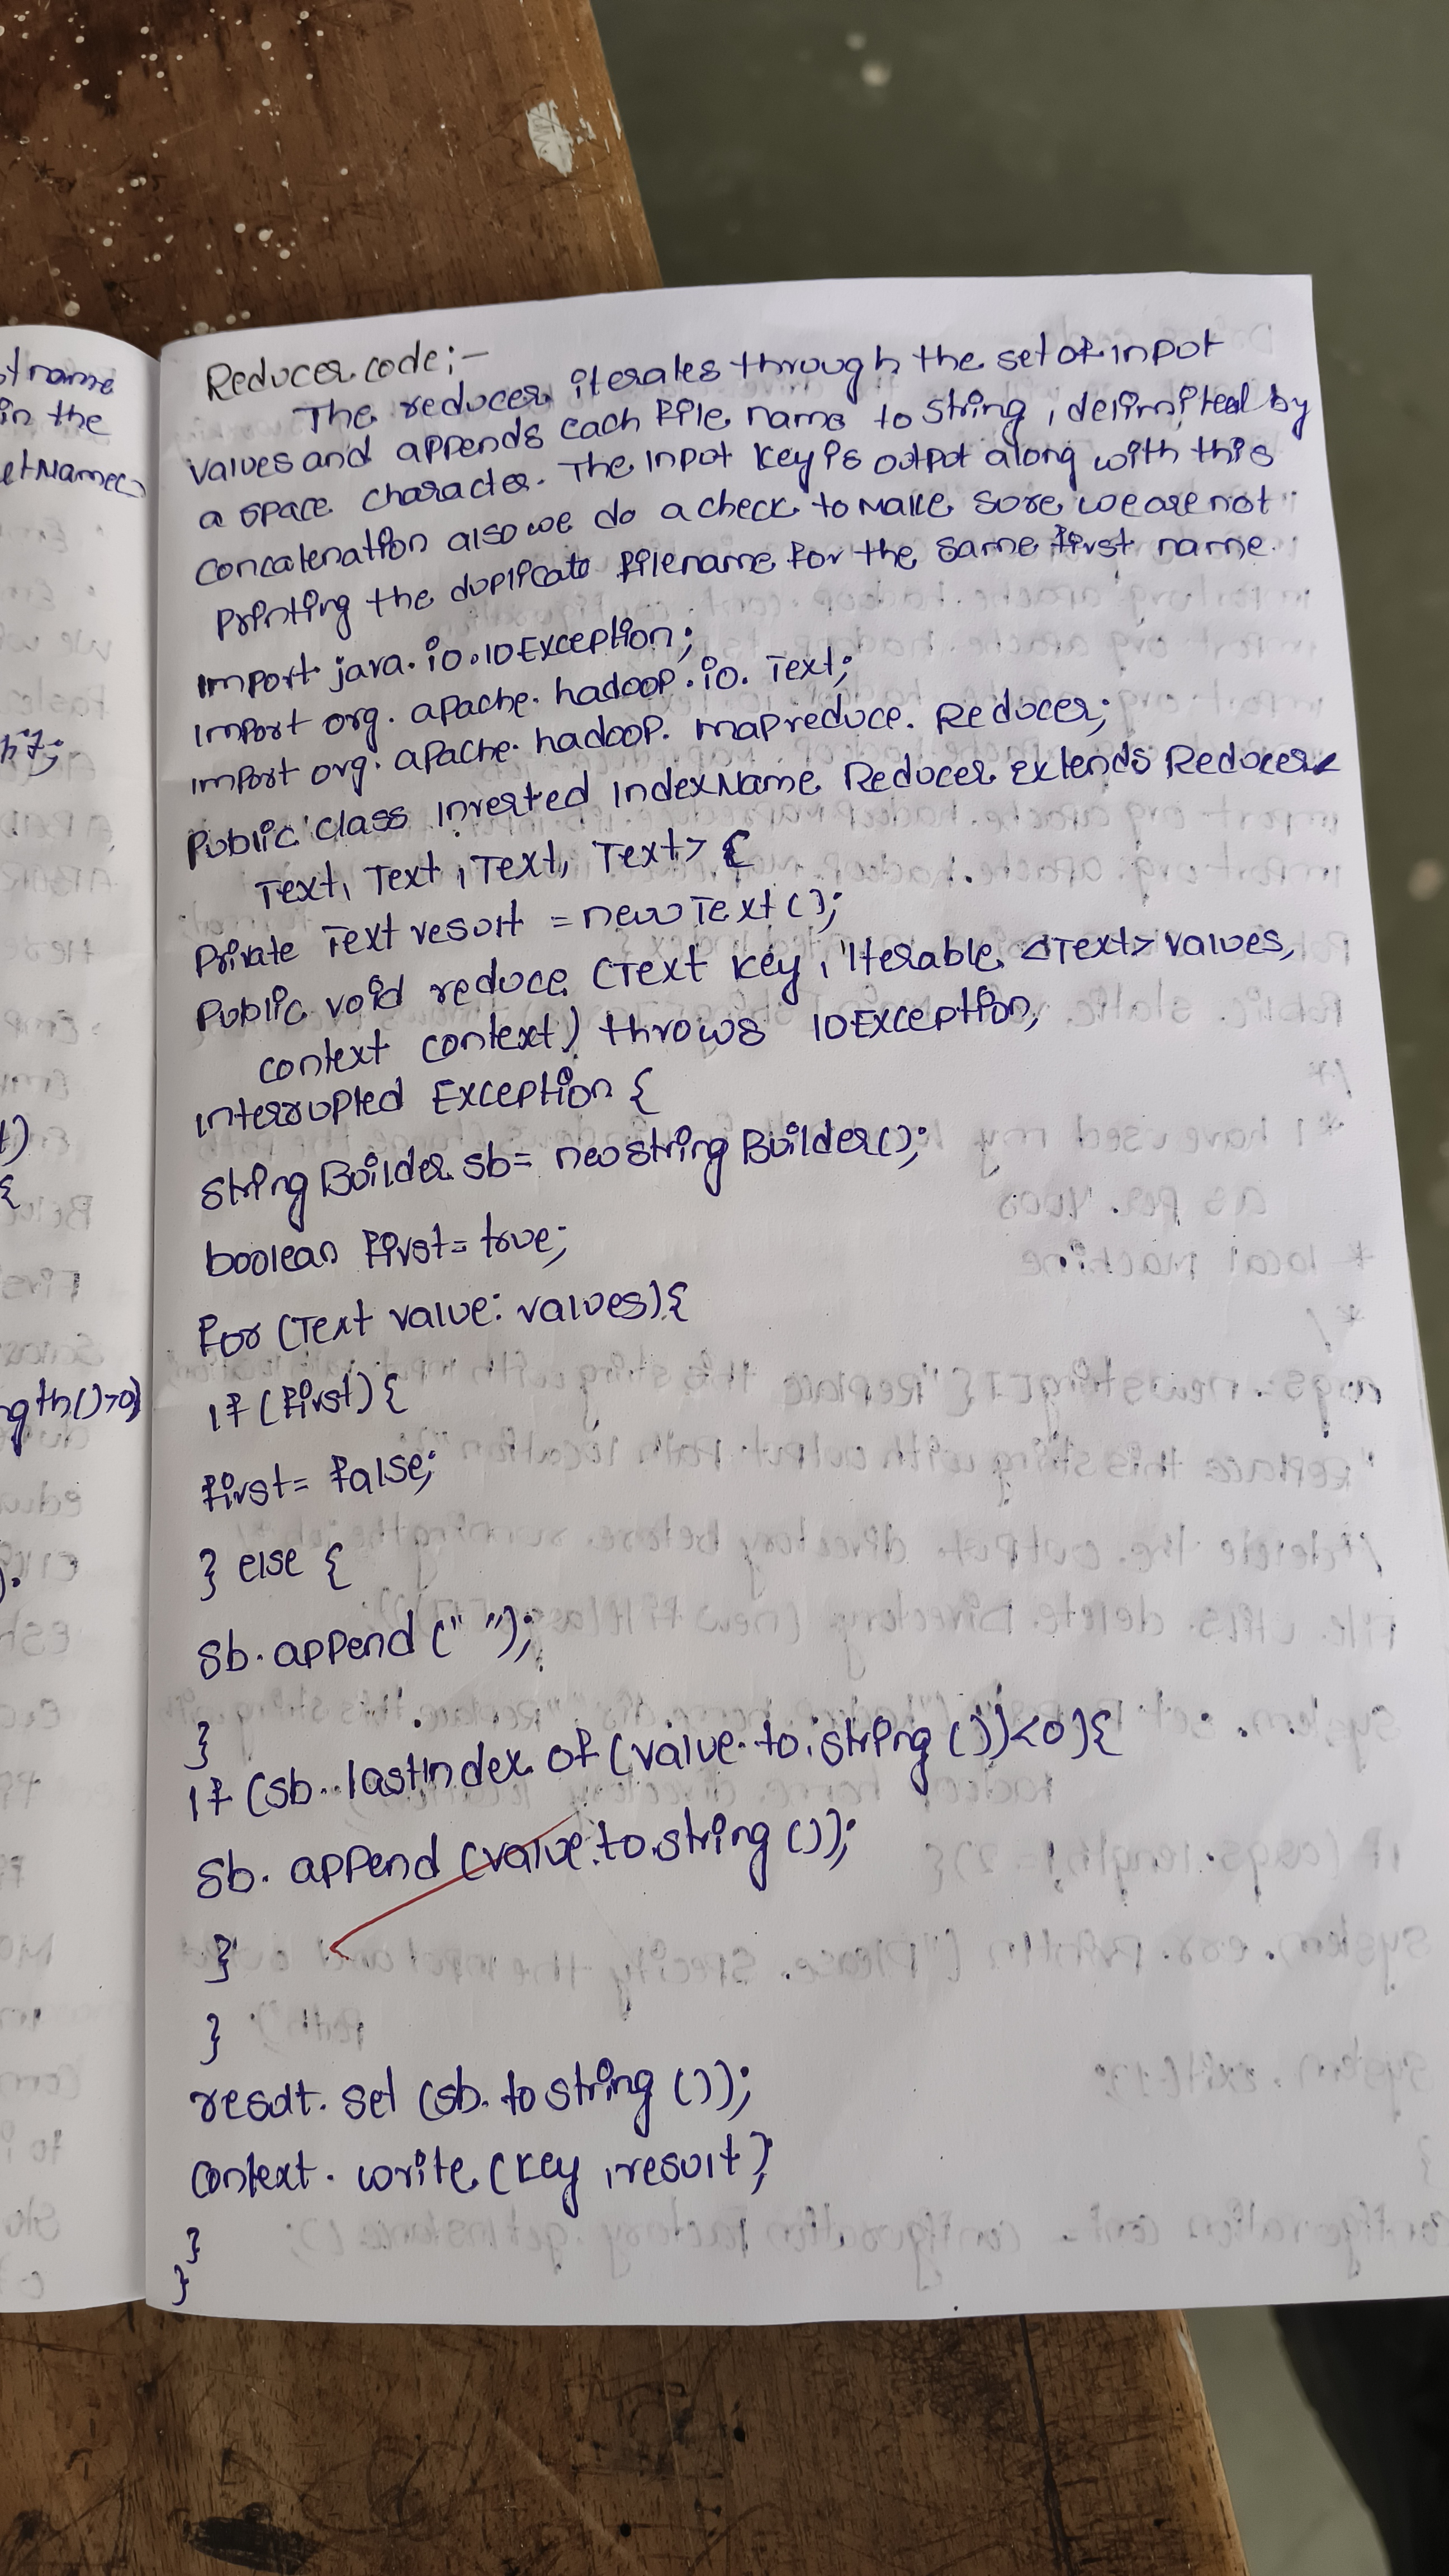 Reducer code:-
The reducer iterates through the set of input
values and appends each file name to string, delimited by
a space character. The input key is output along with this
concatenation also we do a check to make sure we are not
printing the duplicate filename for the same first name.
import java.io.IOException;
import org.apache.hadoop.io.Text;
import org.apache.hadoop.mapreduce.Reducer;
Public class Inverted IndexName Reducer extends Reducer<
Text, Text, Text, Text> {
Private Text result = new Text();
Public void reduce (Text key, Iterable <Text> values,
context context) throws IOException,
Interrupted Exception {
string Builder sb = new string Builder();
boolean first = true;
for (Text value: values){
if (first){
first = false;
} else {
sb.append(" ");
}
if (sb.lastindex of (value.to.string ())<0){
sb.append (value.to.string ());
}
}
result.set (sb.to string ());
context.write (key, result);
}
}
ot name
in the
et Name()
ngth()>0)